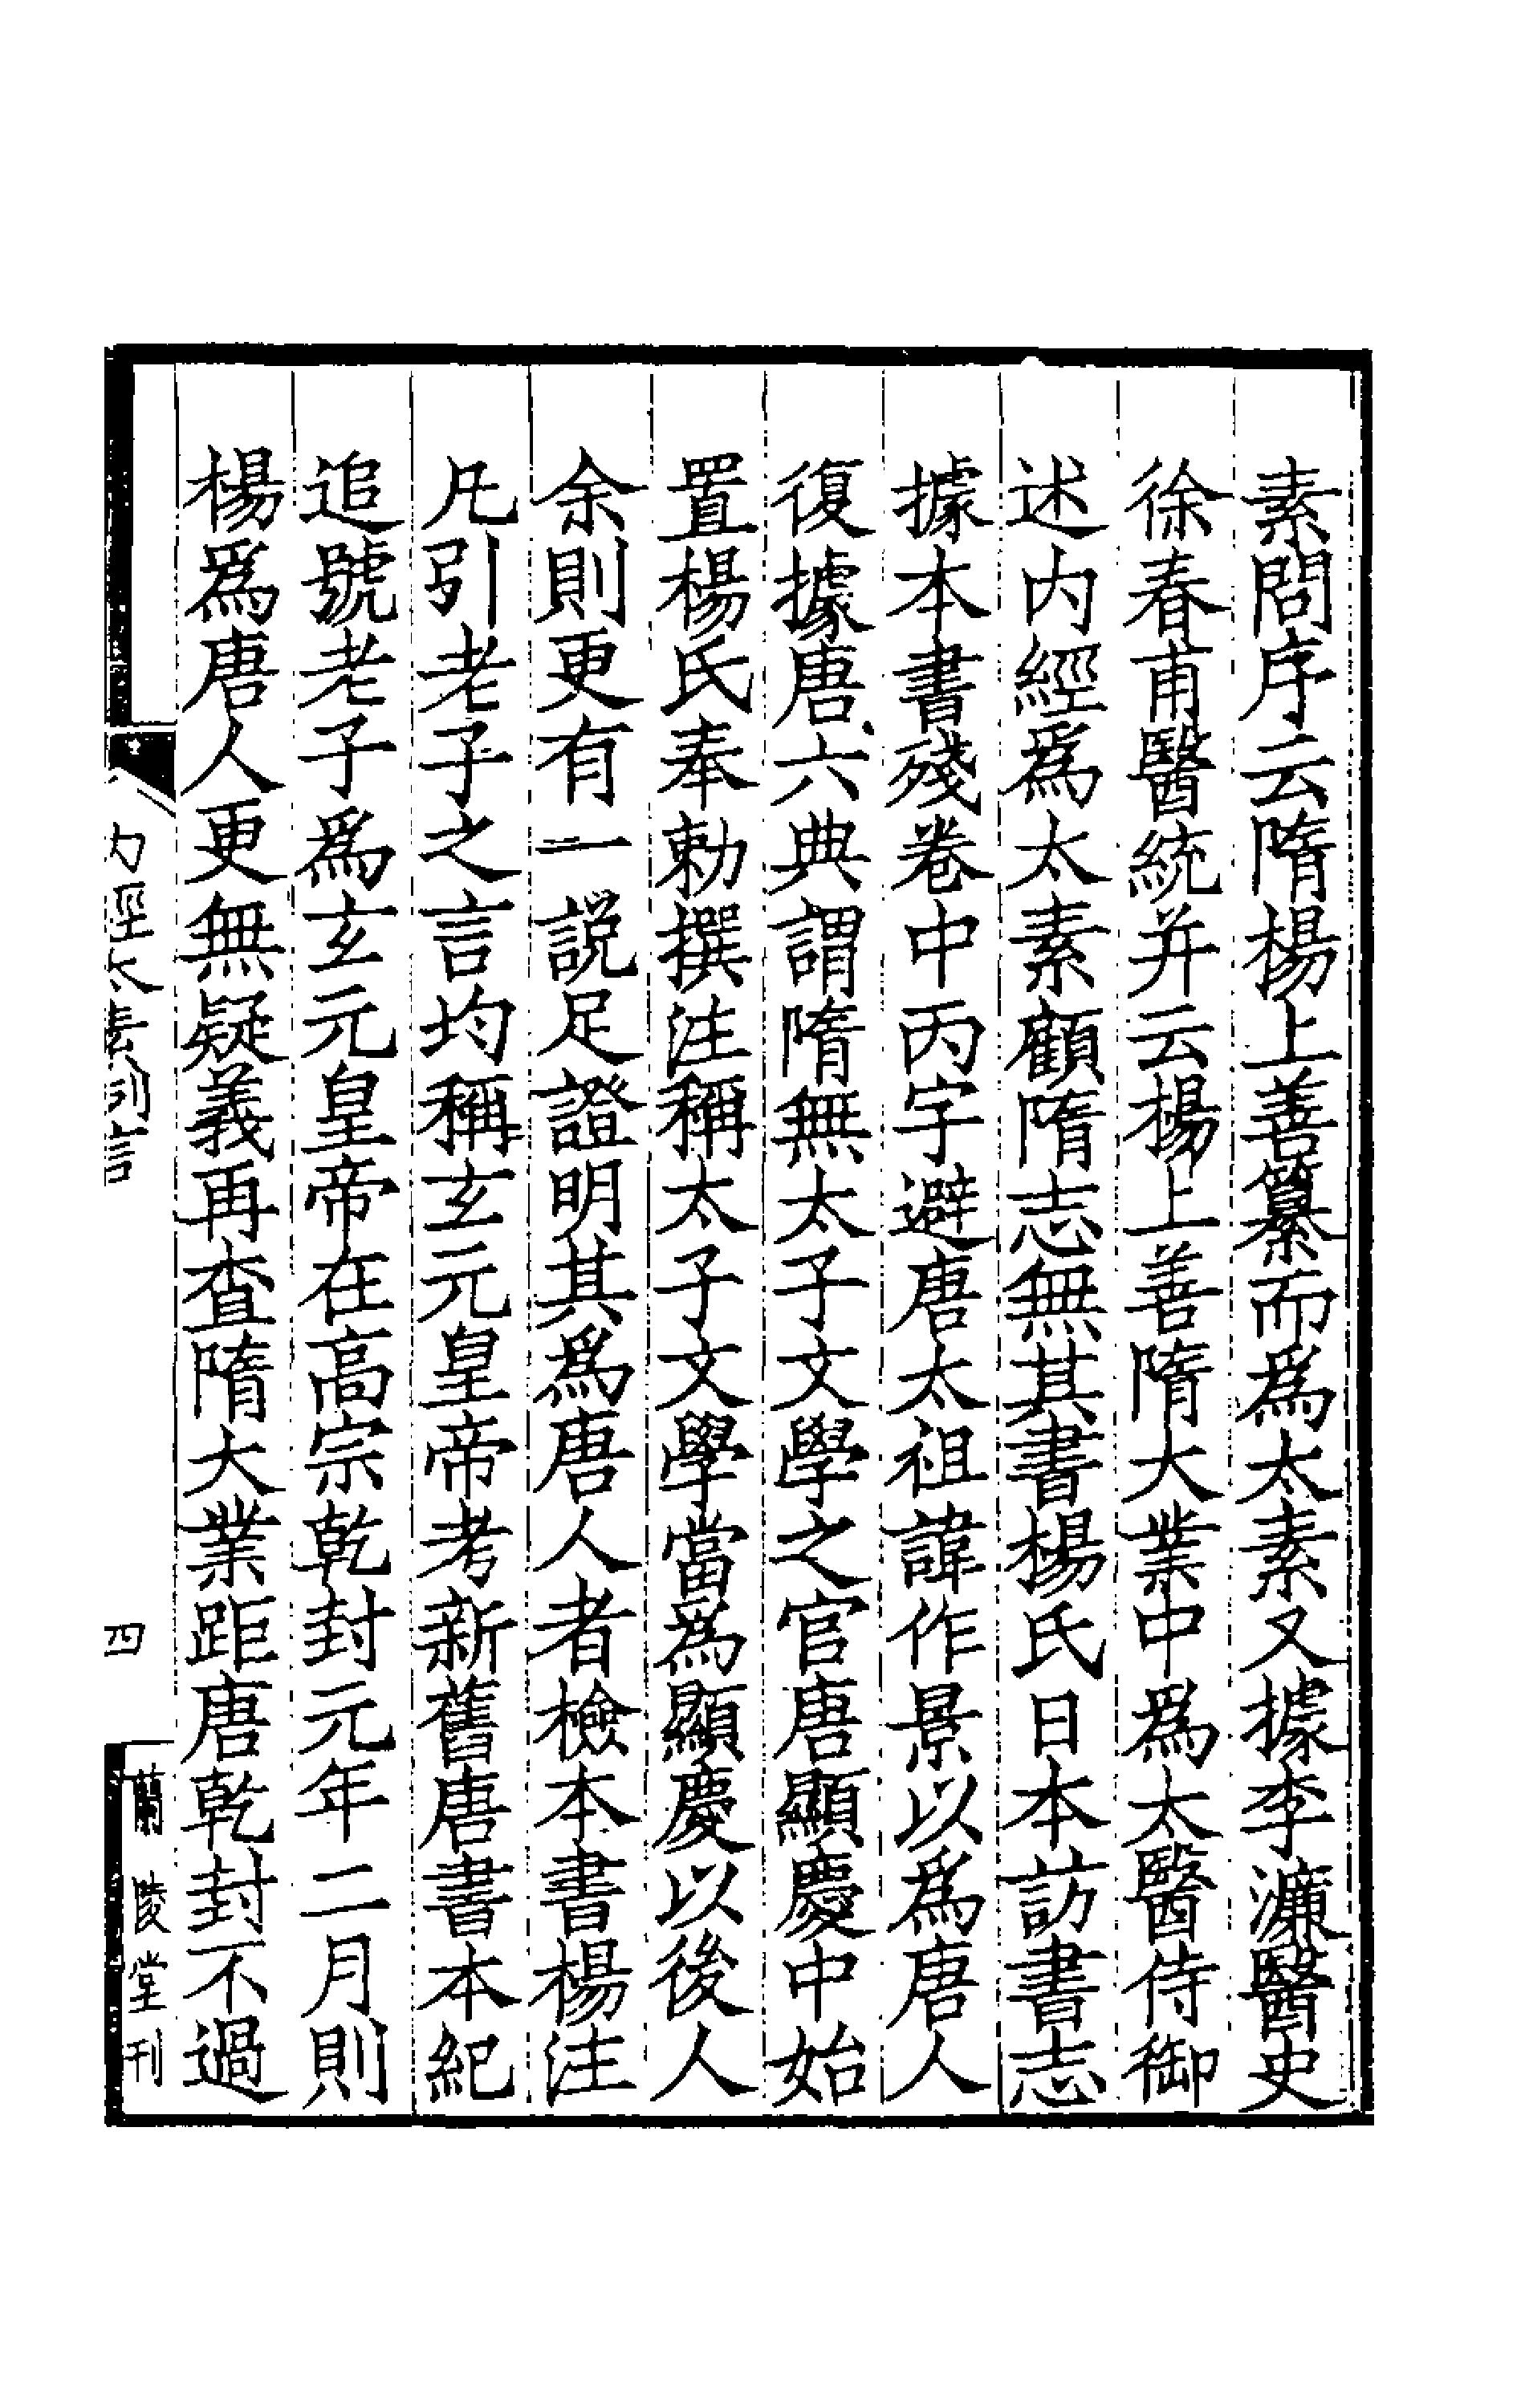 素問序云隋楊上善纂而爲太素又據李濂醫史
徐春甫醫統并云楊上善隋大業中爲太醫侍御
述内經爲太素顧隋志無其書楊氏日本訪書志
據本書殘卷中丙字避唐太祖諱作景以爲唐人
復據唐六典謂隋無太子文學之官唐顯慶中始
置楊氏奉勅撰注稱太子文學當爲顯慶以後人
余則更有一説足證明其爲唐人者檢本書楊注
凡引老子之言均稱玄元皇帝考新舊唐書本紀
追號老子爲玄元皇帝在高宗乾封元年二月則
楊爲唐人更無疑義再查隋大業距唐乾封不過
内經太素例言
四
蘭陵堂刊